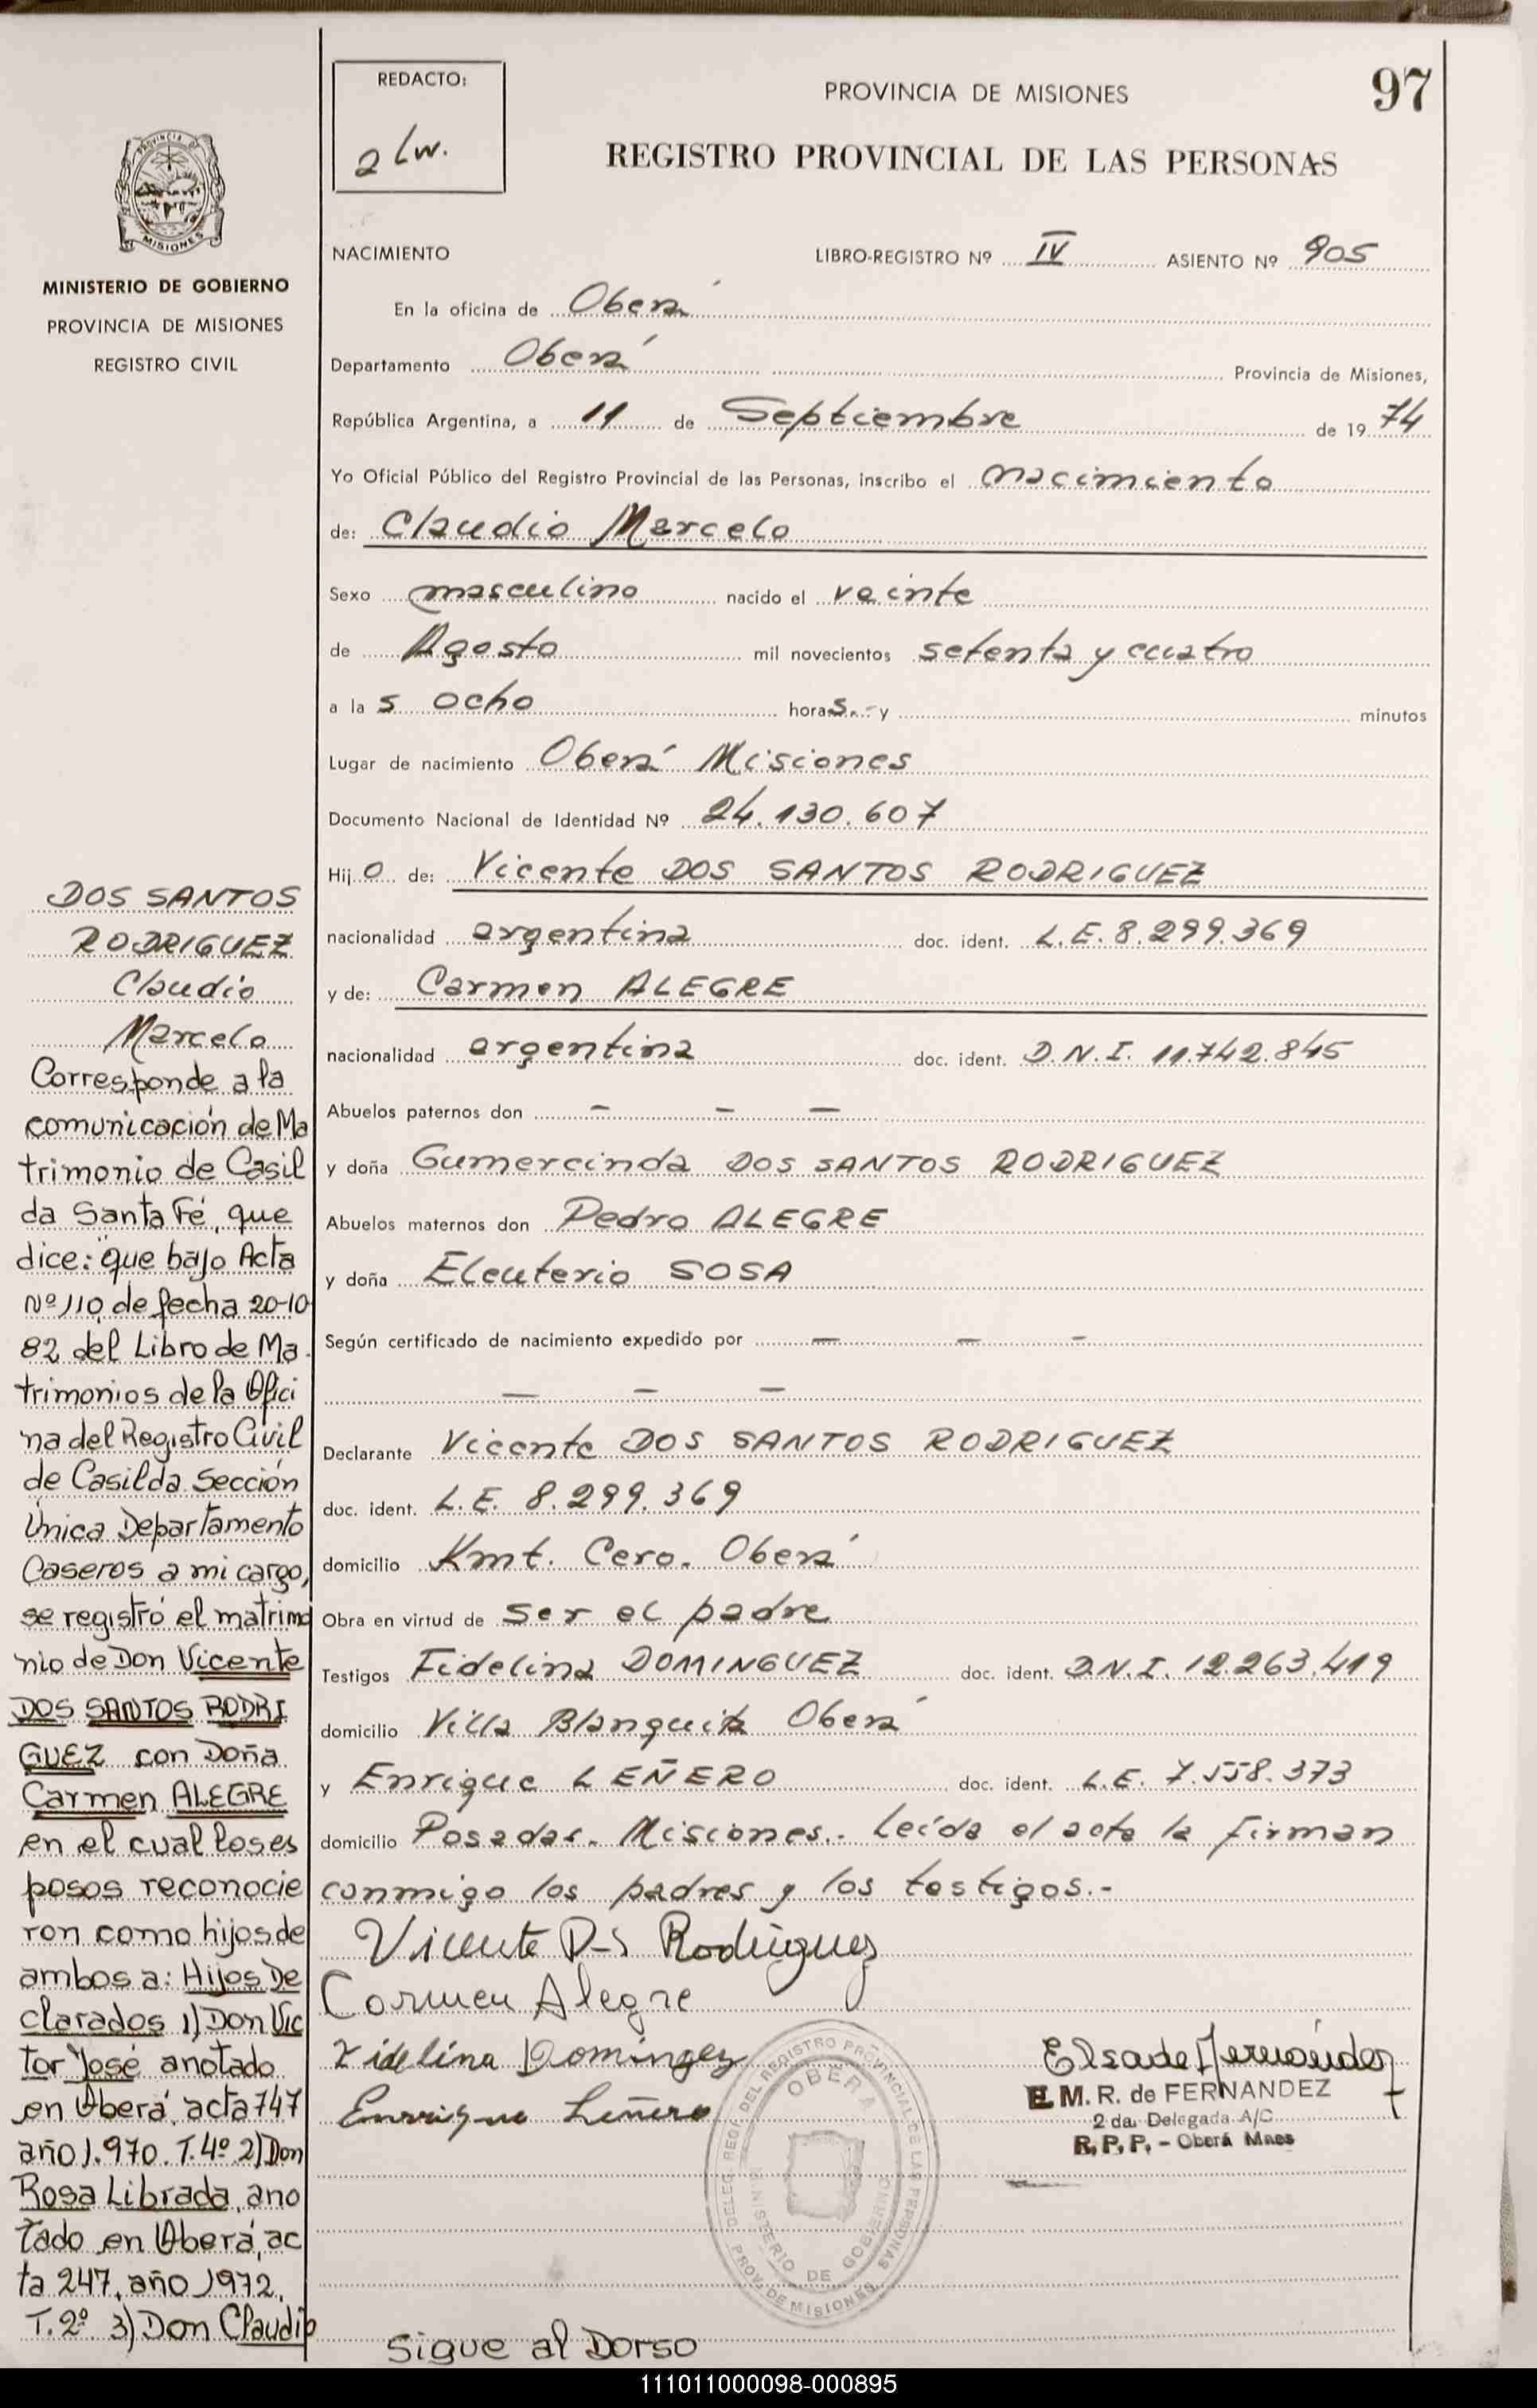 REDACTO:
2 Lw.
PROVINCIA DE MISIONES
97
REGISTRO PROVINCIAL DE LAS PERSONAS
PROVINCIA DE
MISIONES
MINISTERIO DE GOBIERNO
PROVINCIA DE MISIONES
REGISTRO CIVIL
NACIMIENTO LIBRO-REGISTRO Nº IV ASIENTO Nº 905
En la oficina de Oberá
Departamento Oberá Provincia de Misiones,
República Argentina, a 11 de Septiembre de 1974
Yo Oficial Público del Registro Provincial de las Personas, inscribo el nacimiento
de: Claudio Marcelo
Sexo masculino nacido el veinte
de Agosto mil novecientos setenta y cuatro
a las ocho horas.- y minutos
Lugar de nacimiento Oberá Misiones
Documento Nacional de Identidad Nº 24.130.607
Hijo de: Vicente DOS SANTOS RODRIGUEZ
nacionalidad argentina doc. ident. L.E. 8.299.369
y de: Carmen ALEGRE
nacionalidad argentina doc. ident. D.N.I. 11.742.845
Abuelos paternos don — — —
y doña Gumercinda DOS SANTOS RODRIGUEZ
Abuelos maternos don Pedro ALEGRE
y doña Eleuterio SOSA
Según certificado de nacimiento expedido por — — —
— — —
Declarante Vicente DOS SANTOS RODRIGUEZ
doc. ident. L.E. 8.299.369
domicilio Kmt. Cero. Oberá
Obra en virtud de ser el padre
Testigos Fidelina DOMINGUEZ doc. ident. D.N.I. 12.263.419
domicilio Villa Blanquita Oberá
y Enrique LEÑERO doc. ident. L.E. 7.558.373
domicilio Posadas. Misiones.- Leída el acta la firman
conmigo los padres y los testigos.-
Vicente D-S Rodriguez
Carmen Alegre
Fidelina Dominguez
Enrrique Leñero
Elsa de Fernández
E. M. R. de FERNANDEZ
2 da. Delegada A/C
R. P. P. - Oberá Mnes
DELEG. REGI. DEL REGISTRO PROVINCIAL DE LAS PERSONAS
OBERA
MINISTERIO DE GOBIERNO
PROV. DE MISIONES
Sigue al Dorso
DOS SANTOS
RODRIGUEZ
Claudio
Marcelo
Corresponde a la
comunicación de Ma
trimonio de Casil
da Santa Fé, que
dice: "que bajo Acta
Nº 110 de fecha 20-10
82 del Libro de Ma
trimonios de la Ofici
na del Registro Civil
de Casilda Sección
Única Departamento
Caseros a mi cargo,
se registró el matrimo
nio de Don Vicente
DOS SANTOS RODRI
GUEZ con Doña
Carmen ALEGRE
en el cual los es
posos reconocie
ron como hijos de
ambos a: Hijos De
clarados 1) Don Víc
tor José anotado
en Oberá, acta 747
año 1.970. T.4º 2) Don
Rosa Librada, ano
tado en Oberá, ac
ta 247, año 1972,
T.2º 3) Don Claudio
111011000098-000895